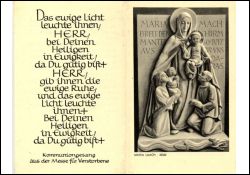 Das ewige licht
leuchte ihnen,
HERR,
bei Deinen
Heiligen
in Ewigkeit,
da Du gütig bist+
HERR,
gib ihnen die
ewige Ruhe,
und das ewige
licht leuchte
ihnen+
Bei Deinen
Heiligen
in Ewigkeit,
da Du gütig bist+
Kommuniongesang
aus der Messe für Verstorbene
MARIA MACH
BREIT DEN
MANTEL
AUS